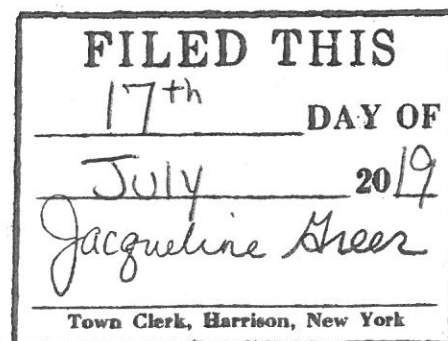 FILED THIS
17th DAY OF
July 2019
Jacqueline Greer
Town Clerk, Harrison, New York